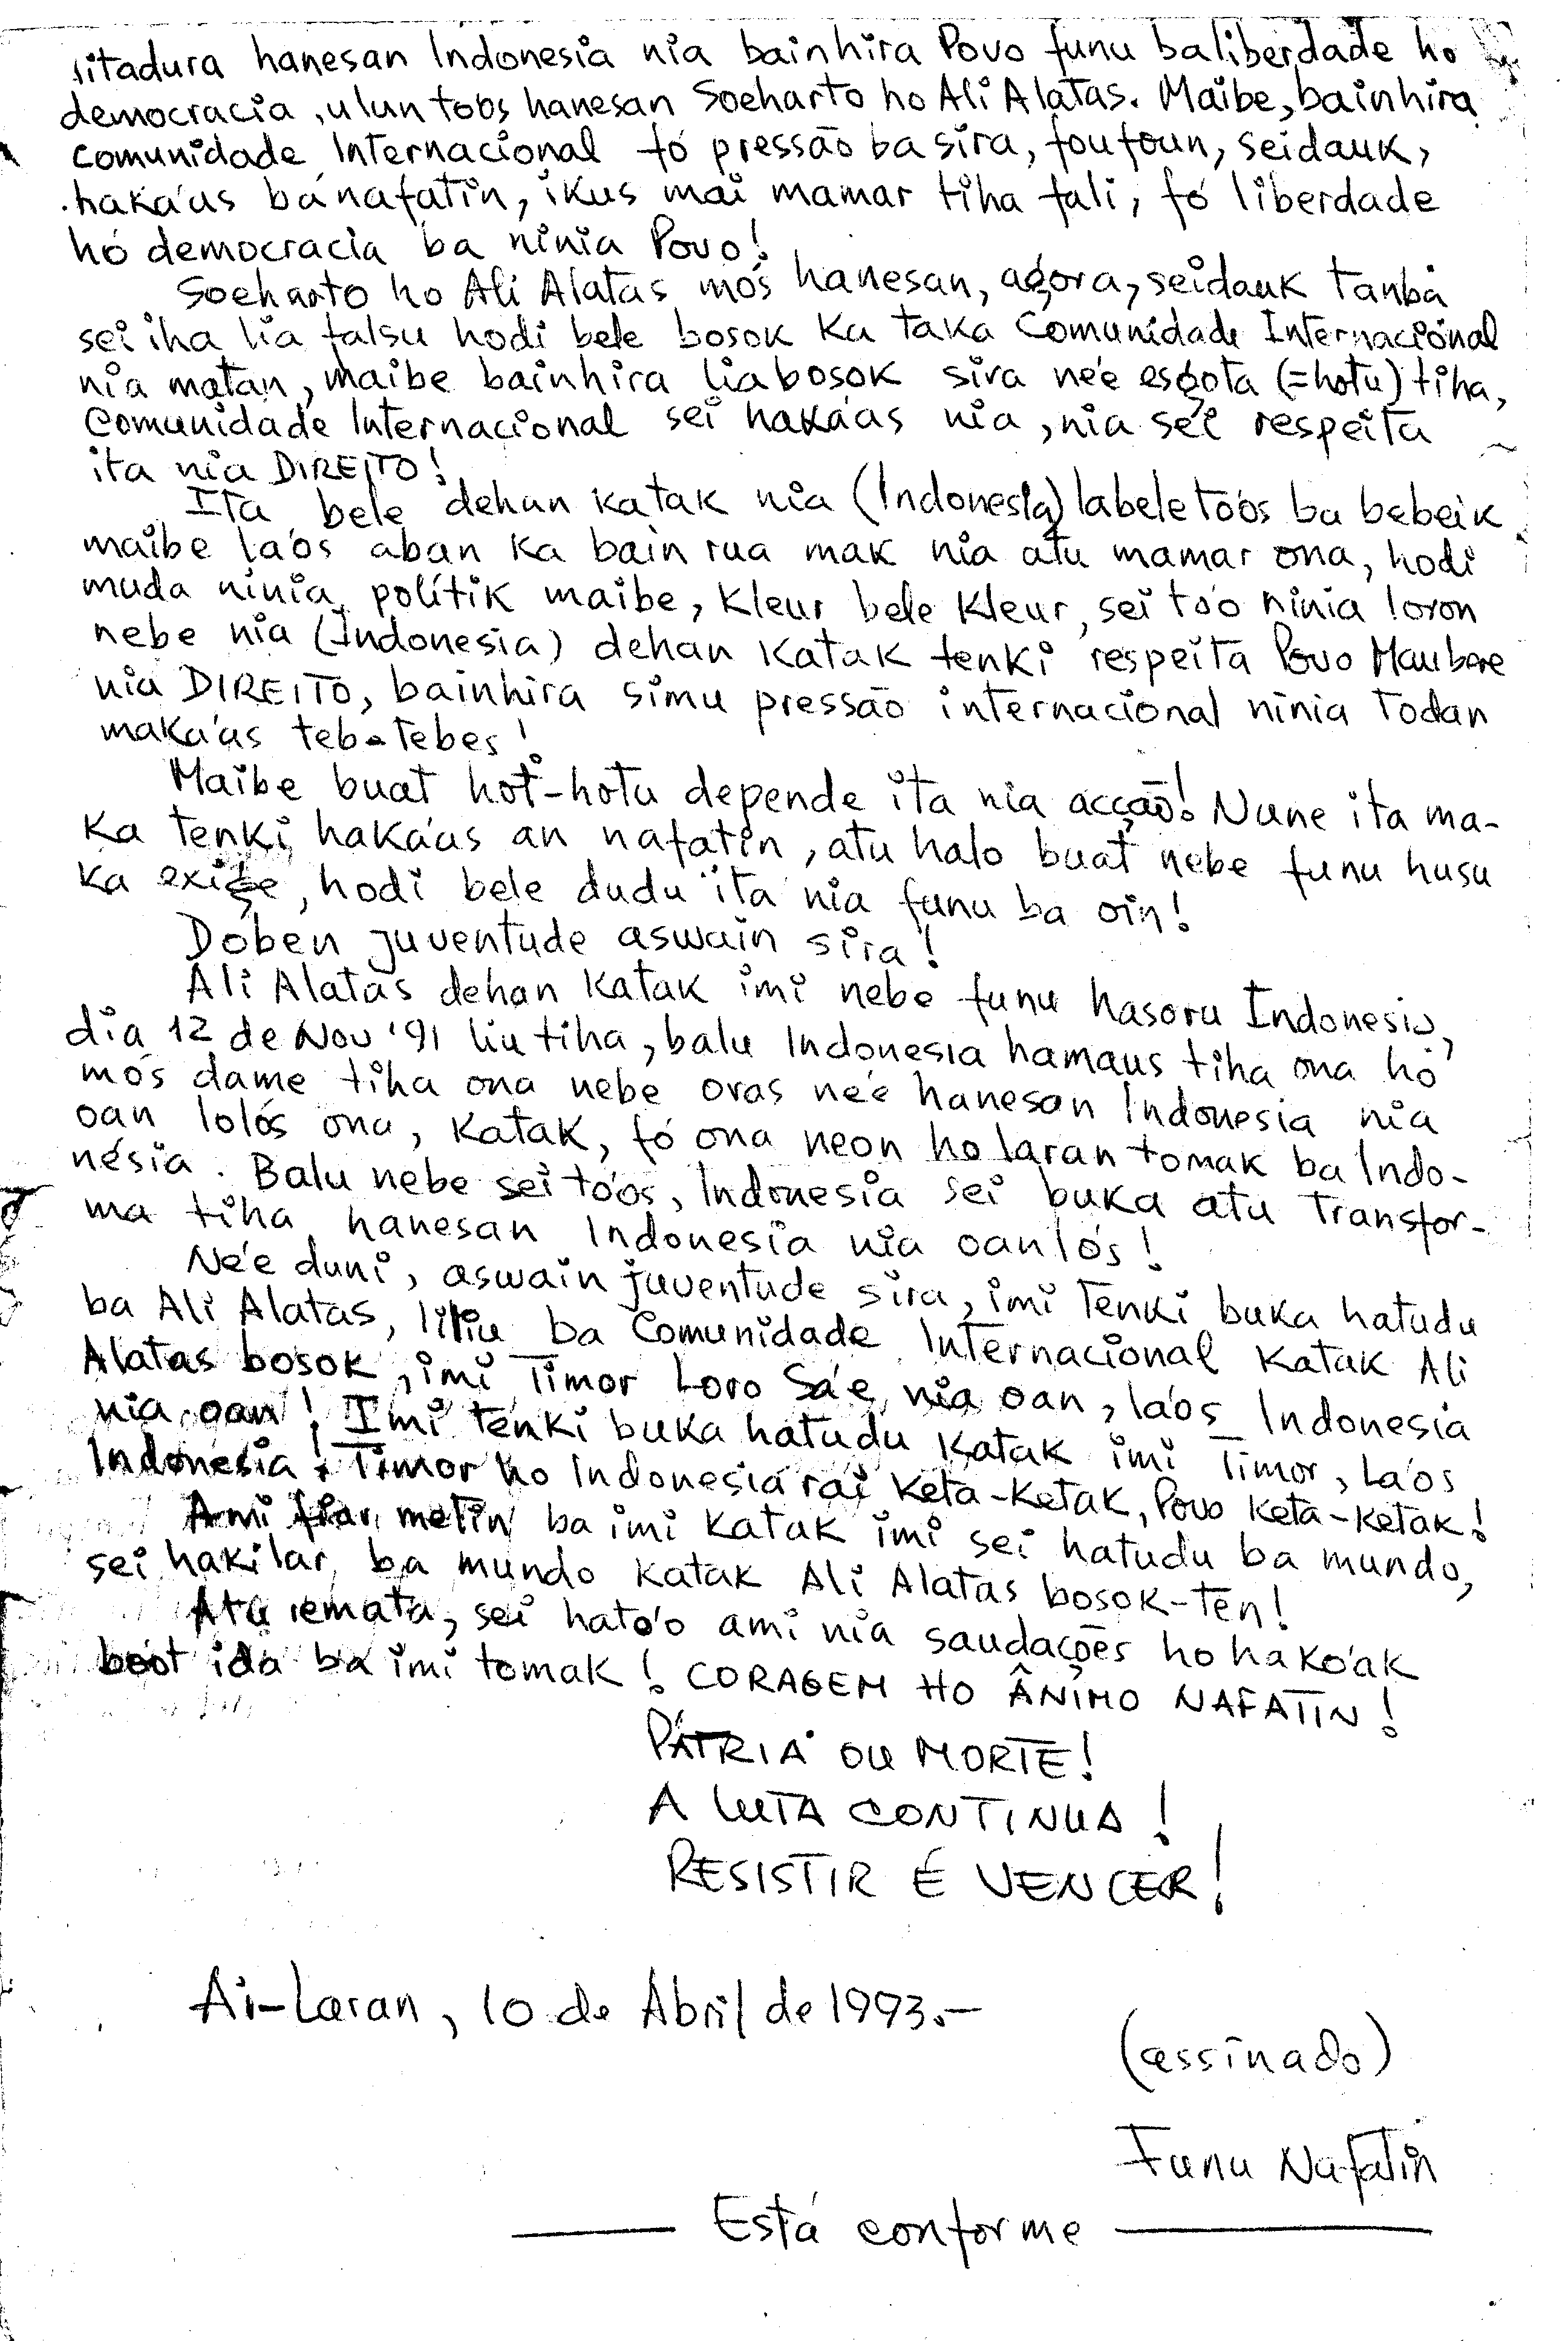 ditadura hanesan Indonesia nia bainhira Povo funu ba liberdade ho
democracia, ulun toos hanesan Soeharto ho Ali Alatas. Maibe, bainhira
Comunidade Internacional fó pressão ba sira, foufoun, seidauk,
haka'as bá nafatin, ikus mai mamar tiha fali, fó liberdade
hó democracia ba ninia Povo!
Soeharto ho Ali Alatas mós hanesan, agora, seidauk tanba
sei iha lia falsu hodi bele bosok ka taka Comunidade Internacional
nia matan, maibe bainhira lia bosok sira ne'e esgota (=hotu) tiha,
Comunidade Internacional sei haka'as nia, nia sei respeita
ita nia DIREITO!
Ita bele dehan katak nia (Indonesia) labele to'os ba bebeik
maibe la'os aban ka bain rua mak nia atu mamar ona, hodi
muda ninia polítik maibe, kleur bele kleur, sei to'o ninia loron
nebe nia (Indonesia) dehan katak tenki respeita Povo Maubere
nia DIREITO, bainhira simu pressão internacional ninia todan
maka'as teb-tebes!
Maibe buat hot-hotu depende ita nia acção! Nune ita ma-
ka tenki haka'as an nafatin, atu halo buat nebe funu husu
ka exige, hodi bele dudu ita nia funu ba oin!
Doben juventude aswain sira!
Ali Alatas dehan katak imi nebe funu hasoru Indonesia,
dia 12 de Nov '91 liu tiha, balu Indonesia hamaus tiha ona hó
mós dame tiha ona nebe oras ne'e hanesan Indonesia nia
oan lolós ona, katak, fó ona neon ho laran tomak ba Indo-
nésia. Balu nebe sei to'os, Indonesia sei buka atu transfor-
ma tiha hanesan Indonesia nia oan lós!
Ne'e duni, aswain juventude sira, imi tenki buka hatudu
ba Ali Alatas, liliu ba Comunidade Internacional katak Ali
Alatas bosok, imi Timor Loro Sa'e nia oan, la'os Indonesia
nia oan! Imi tenki buka hatudu katak imi Timor, la'os
Indonesia! Timor ho Indonesia rai keta-ketak, Povo keta-ketak!
Ami fiar metin ba imi katak imi sei hatudu ba mundo,
sei hakilar ba mundo katak Ali Alatas bosok-ten!
Atu remata, sei hato'o ami nia saudações ho hako'ak
boot ida ba imi tomak! CORAGEM HO ÂNIMO NAFATIN!
PÁTRIA OU MORTE!
A LUTA CONTINUA!
RESISTIR É VENCER!
Ai-Laran, 10 de Abril de 1993.-
(assinado)
Funu Nafatin
Está conforme